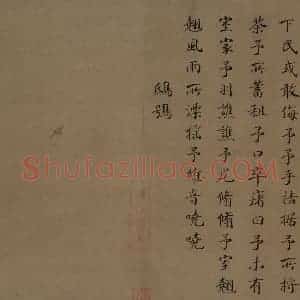 下民或敢侮予予手拮据予所捋
荼予所蓄租予口卒瘏曰予未有
室家予羽譙譙予尾翛翛予室翹
翹風雨所漂搖予維音嘵嘵
鴟鴞
Shufazillao.COM